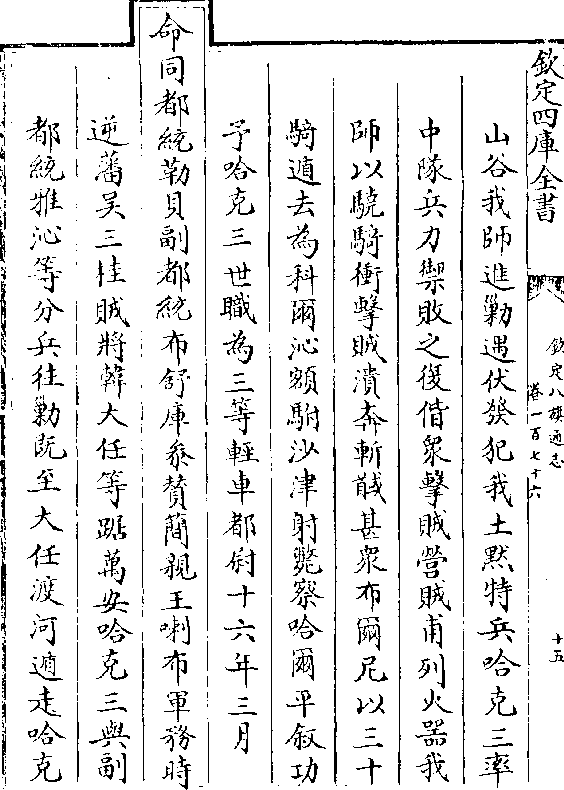 欽定四庫全書
欽定八旗通志
卷一百七十六
十五
山谷我師進勦遇伏發犯我土黙特兵哈克三率
中隊兵力禦敗之復偕眾擊賊營賊甫列火器我
師以驍騎衝擊賊潰奔斬馘甚衆布爾尼以三十
騎遁去為科爾沁額駙沙津射斃察哈爾平敘功
予哈克三世職為三等輕車都尉十六年三月
命同都統勒貝副都統布舒庫叅贊簡親王喇布軍務時
逆藩吴三桂賊將韓大任等踞萬安哈克三與副
都統雅沁等分兵往勦既至大任渡河遁走哈克